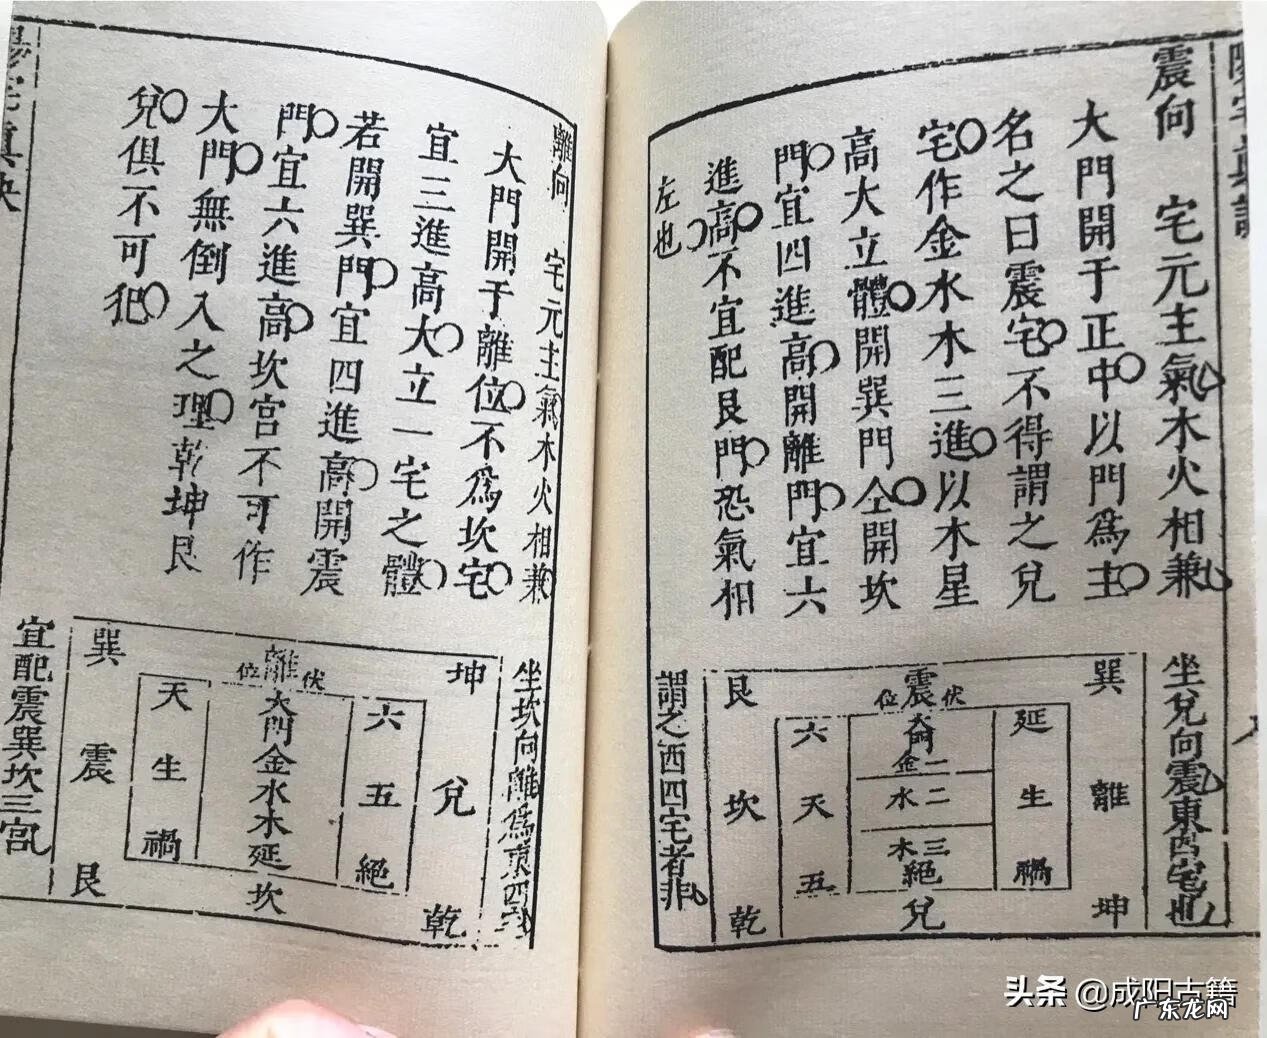 震向　宅元主氣木火相兼
大門開于正中以門為主
名之曰震宅不得謂之兌
宅作金水木三進以木星
高大立體開巽門仝開坎
門宜四進高開離門宜六
進高不宜配艮門恐氣相
左也
坐兌向震東西宅也
巽 離 坤
延 生 禍
伏 震 位
大門
金一
水二
木三
絕
兌
六 天 五
艮 坎 乾
謂之西四宅者非
離向　宅元主氣木火相兼
大門開于離位不為坎宅
宜三進高大立一宅之體
若開巽門宜四進高開震
門宜六進高坎宮不可作
大門無倒入之理乾坤艮
兌俱不可犯
坐坎向離為東四宅
坤 兌 乾
六 五 絕
伏 離 位
大門金水木延
坎
天 生 禍
巽 震 艮
宜配震巽坎三宮
陽宅真訣
头条 @成阳古籍
广东龙网